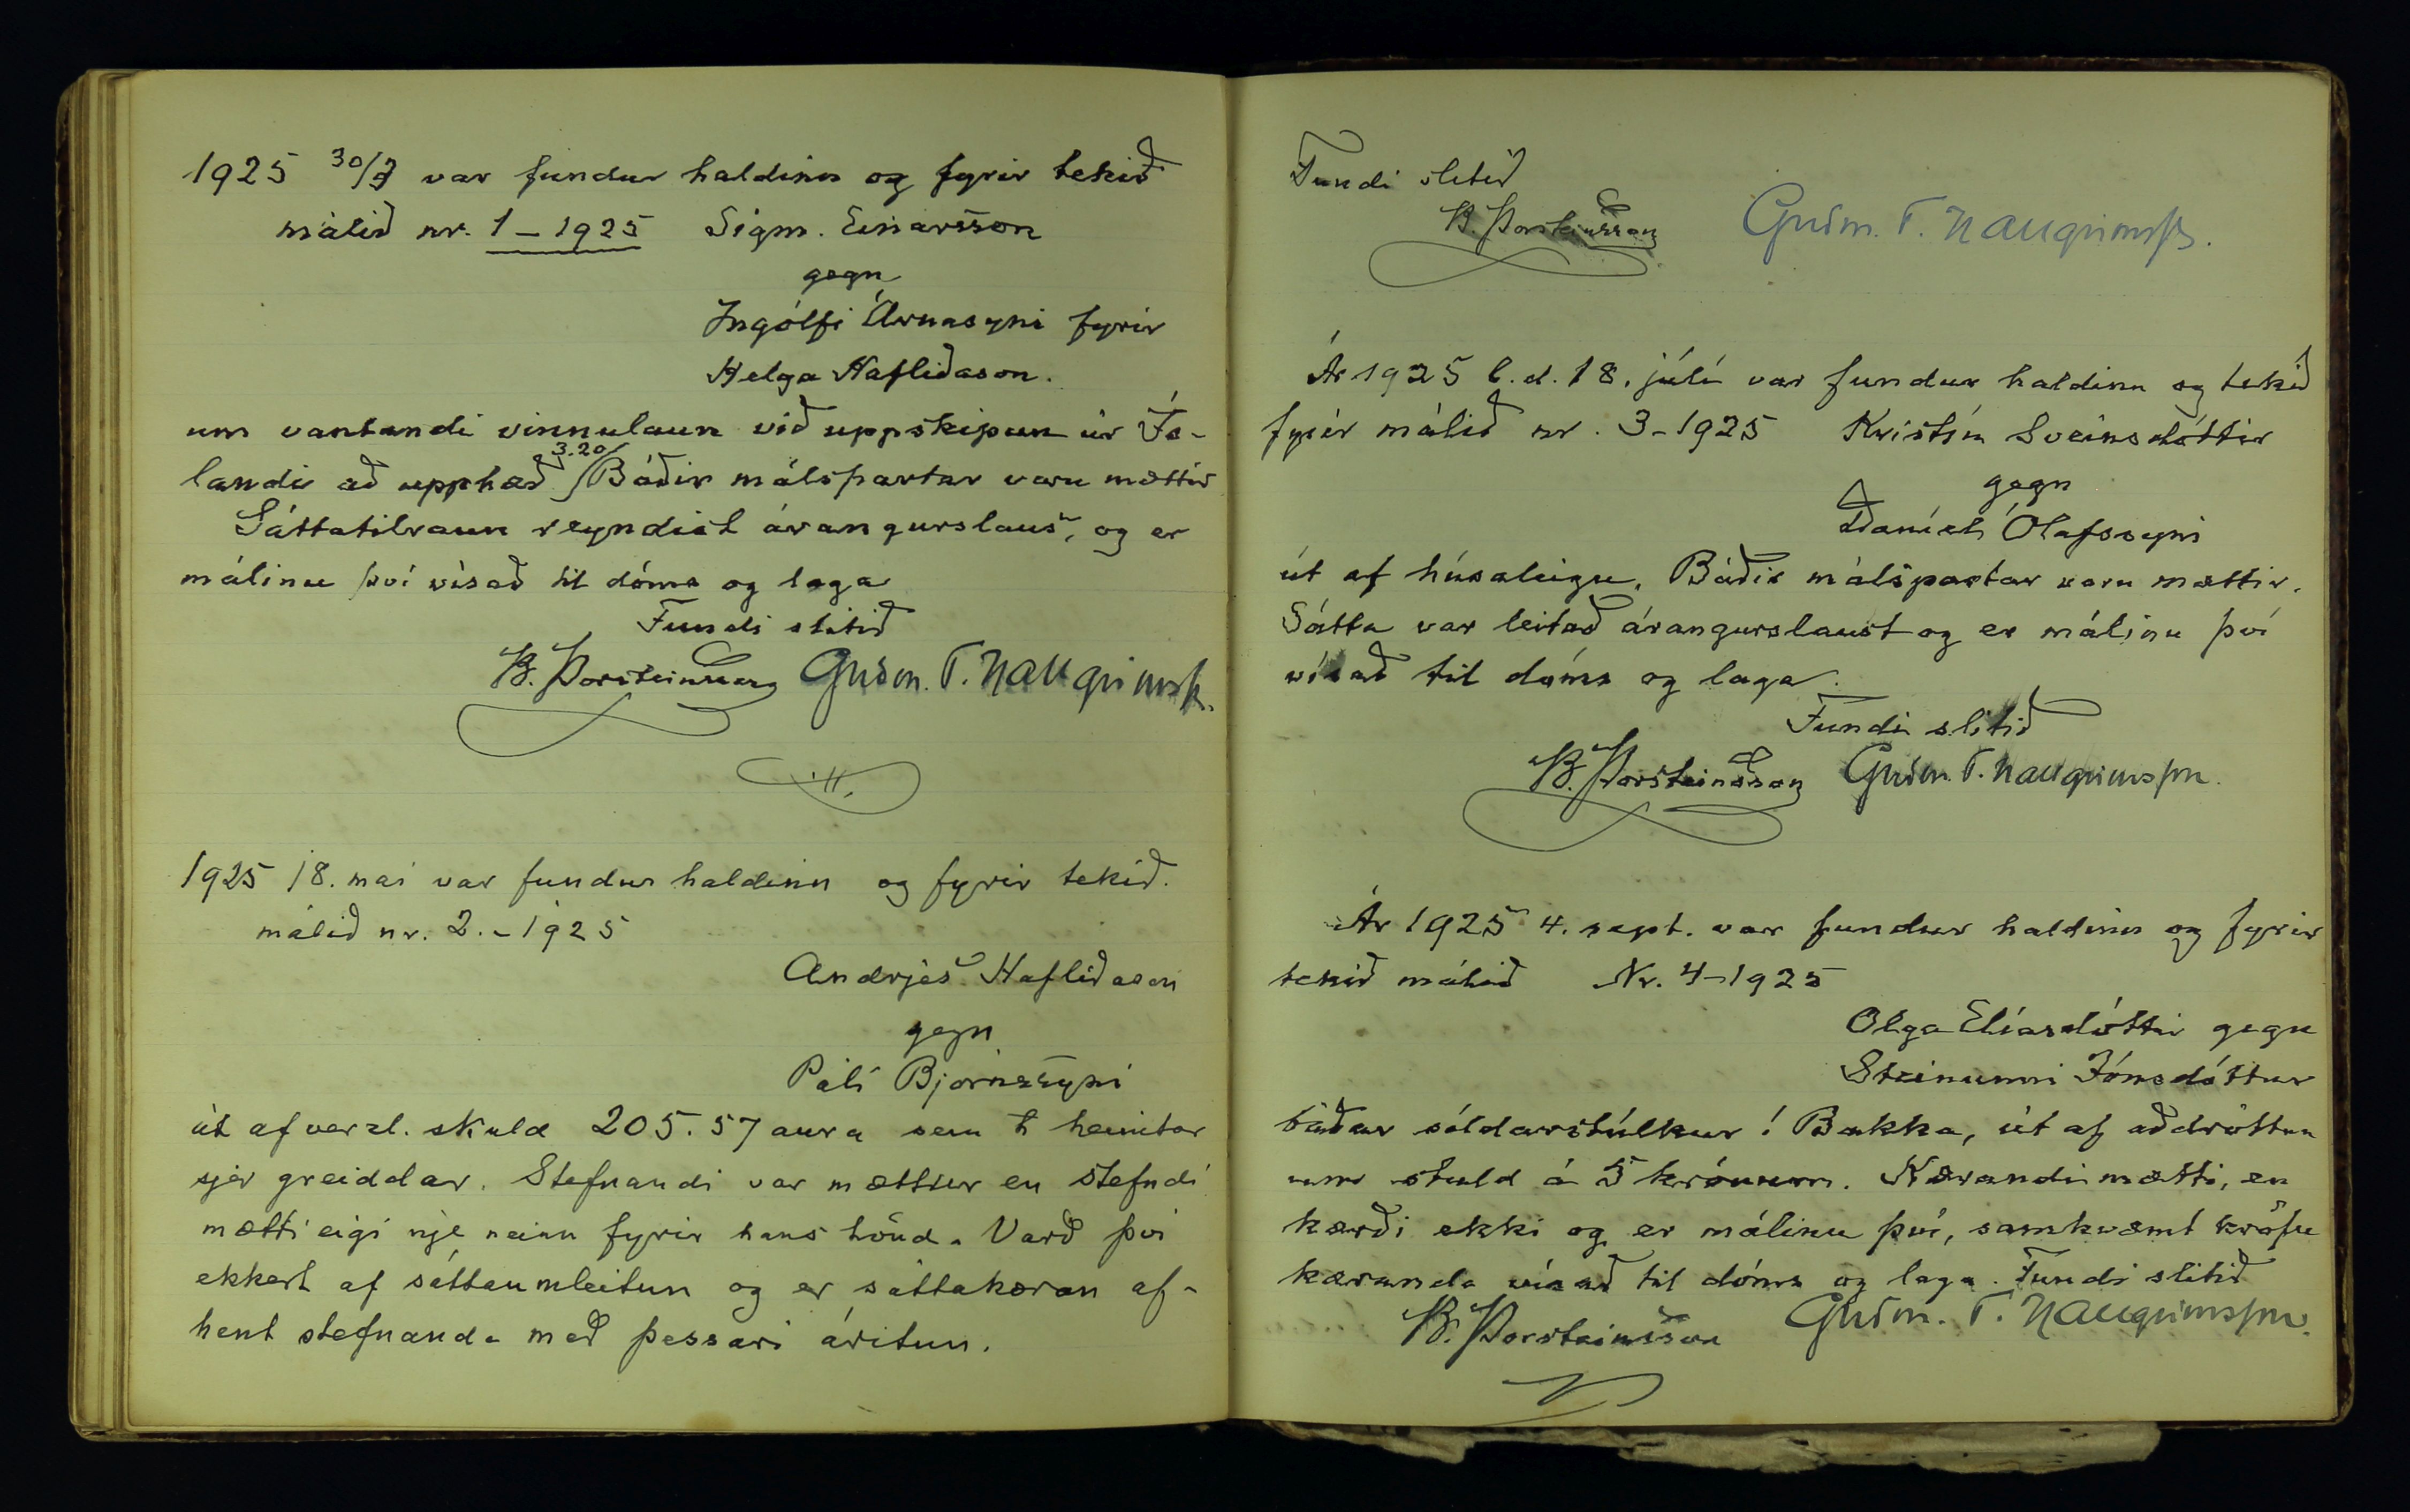 1925 30/3 var fundur haldinn og fyrir tekið
málið nr. 1 – 1925 Sigm. Einarsson
gegn
Ingólfi Árnasyni fyrir
Helga Hafliðason.
um vantandi vinnulaun við uppskipun úr Ís-
landi að upphæð 3.20 Báðir málspartar voru mættir
Sáttatilraun reyndist árangurslaus, og er
málinu því vísað til dóms og laga
Fundi slitið
B. Þorsteinsson Guðm. T. Hallgrímss.
1925 18. maí var fundur haldinn og fyrir tekið.
málið nr. 2. – 1925
Andrjes Hafliðason
gegn
Páli Björnssyni
út af verzl. skuld 205.57 aura sem h heimtar
sjer greiddar. Stefnandi var mættur en stefndi
mætti eigi nje neinn fyrir hans hönd. Varð því
ekkert af sáttaumleitun og er sáttakæran af-
hent stefnanda með þessari áritun.
Fundi slitið
B. Þorsteinsson Guðm. T. Hallgrímss.
Ár 1925 l.d. 18. júlí var fundur haldinn og tekið
fyrir málið nr. 3-1925 Kristín Sveinsdóttir
gegn
Daníel Ólafssyni
út af húsaleigu. Báðir málspartar voru mættir.
Sátta var leitað árangurslaust og er málinu því
vísað til dóms og laga.
Fundi slitið
B. Þorsteinsson Guðm. T. Hallgrímsson.
Ár 1925 4. sept. var fundur haldinn og fyrir
tekið málið Nr. 4-1925
Olga Elíasdóttir gegn
Steinunni Jónsdóttur
báðar síldarstúlkur í Bakka, út af aðdróttun
um stuld á 5 krónum. Kærandi mætti, en
kærði ekki og er málinu því, samkvæmt kröfu
kæranda vísað til dóms og laga. Fundi slitið
B. Þorsteinsson Guðm. T. Hallgrímsson.